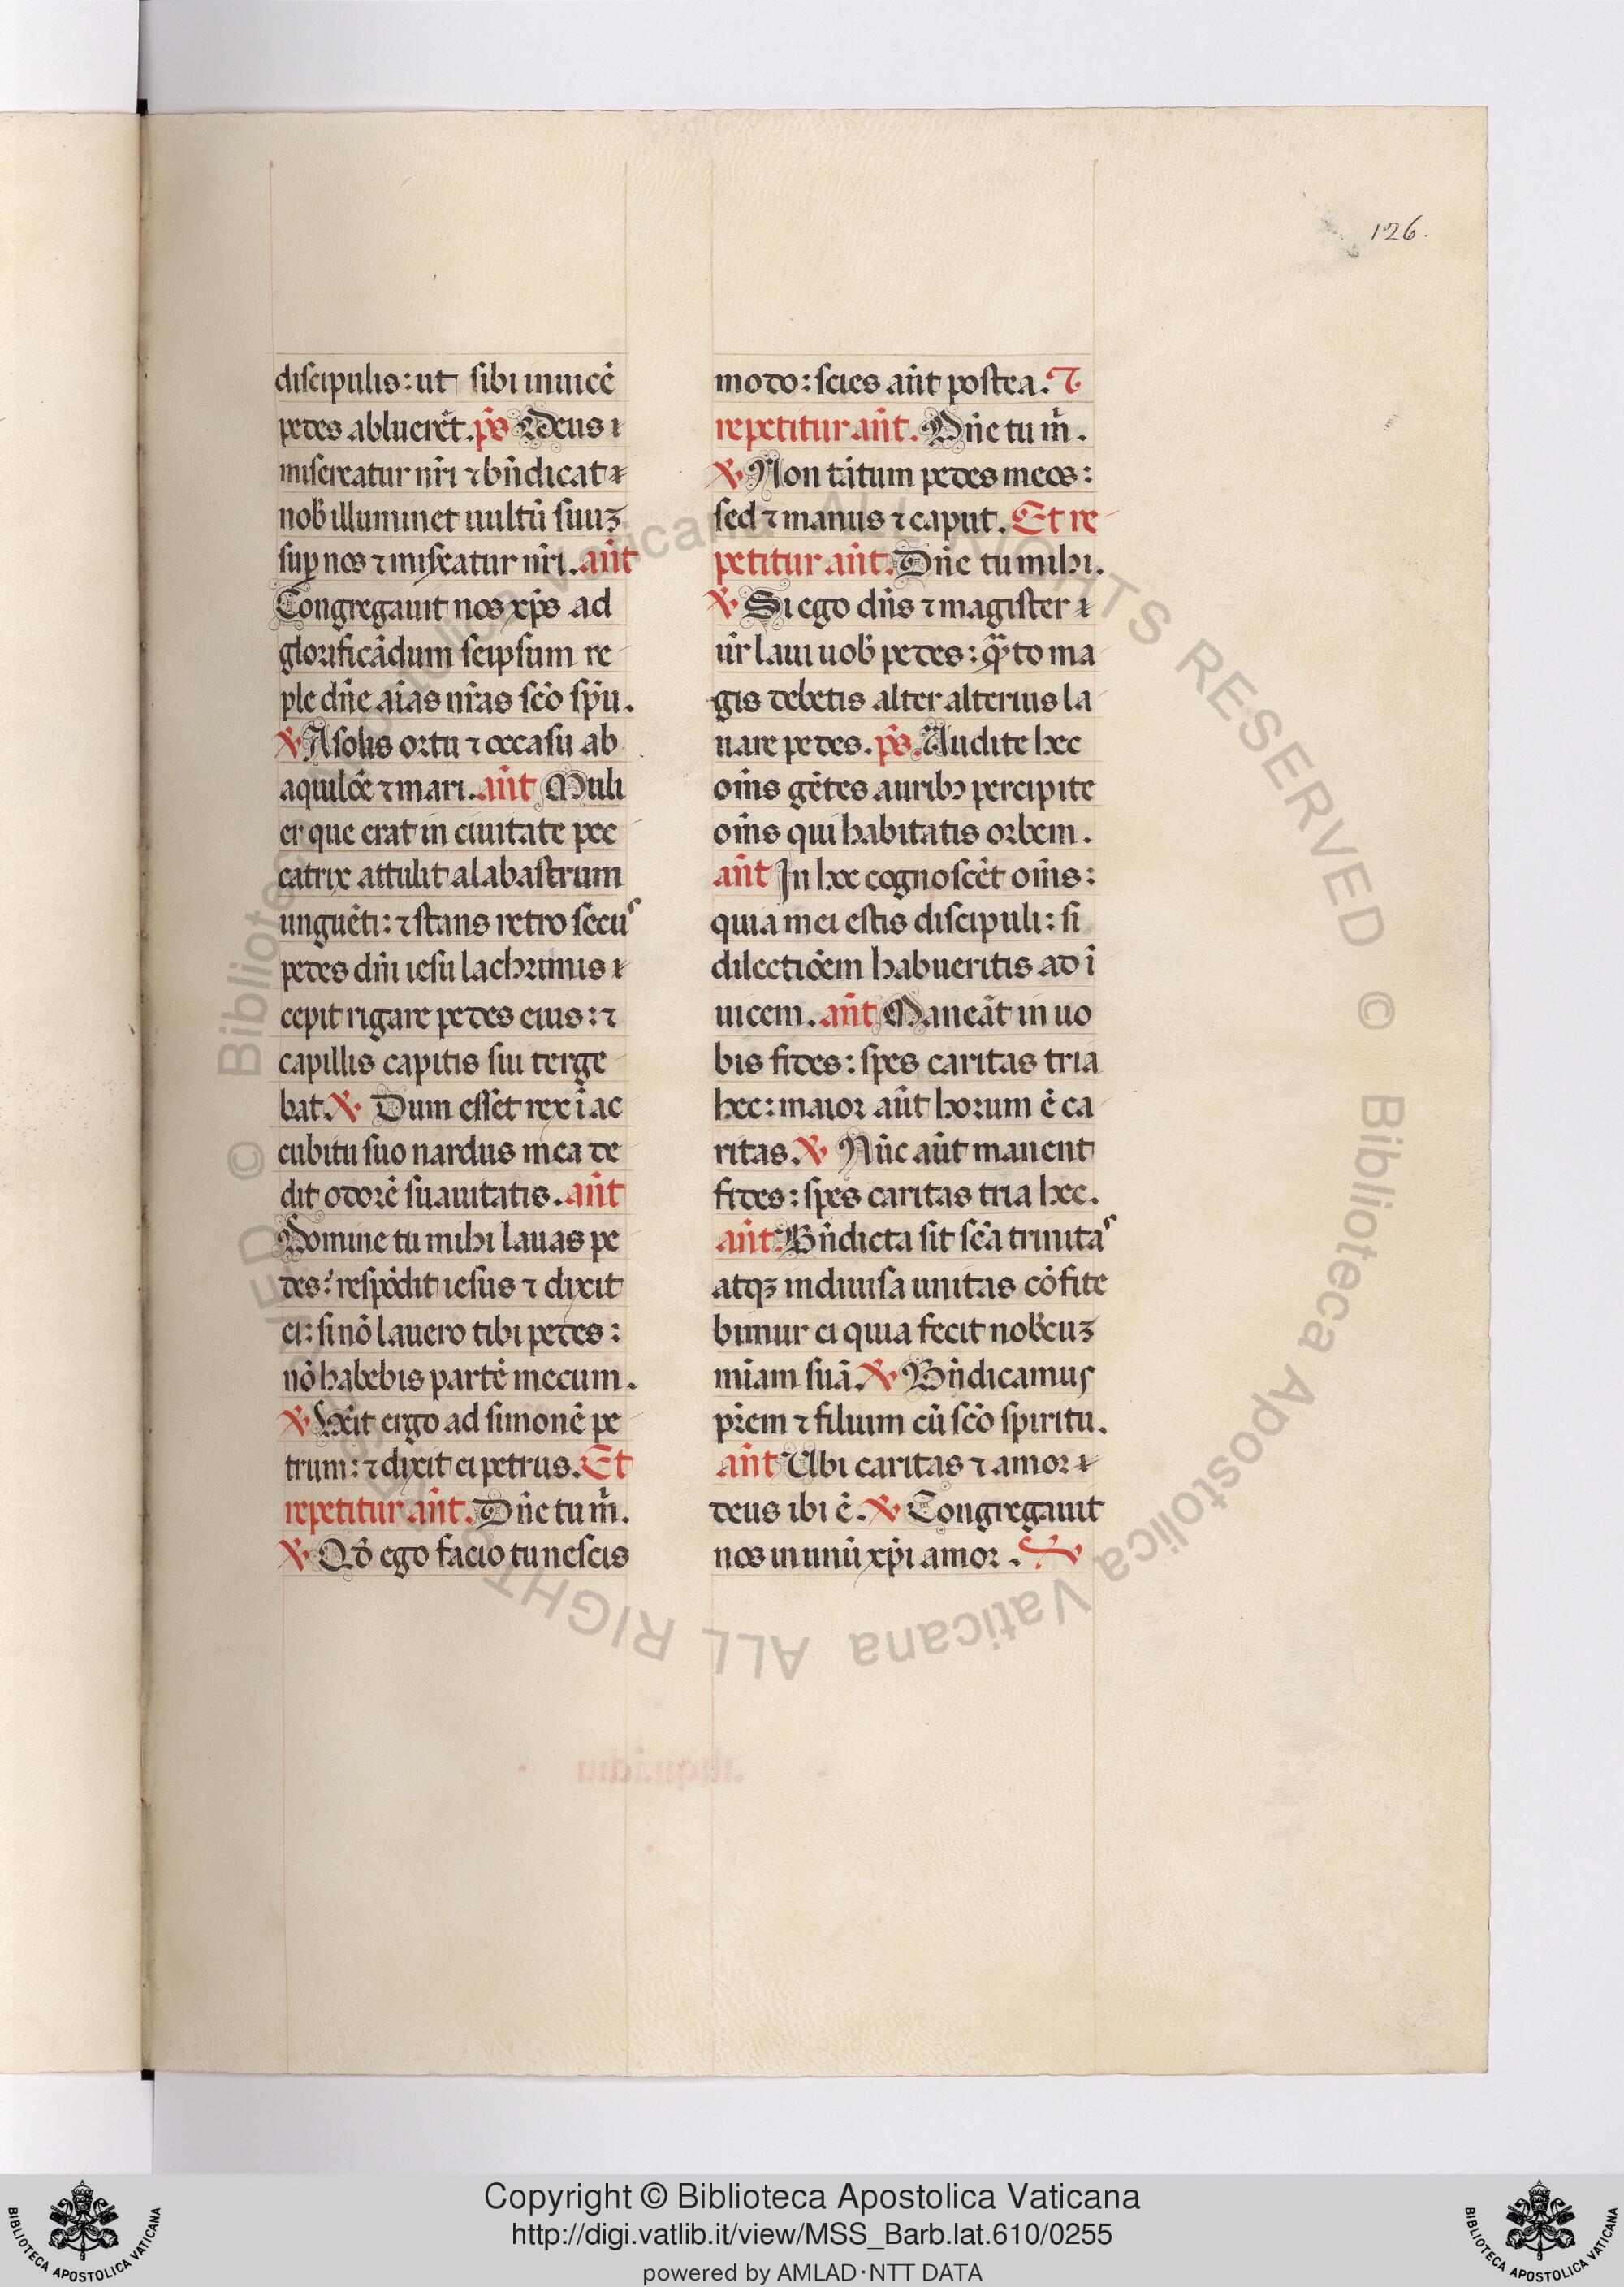 126.
discipulis: ut sibi inuicē
pedes abluerēt. p̄s Deus
misereatur nr̄i ⁊ bn̄dicat
nob̄ illuminet uultū suuꝫ
suꝑ nos ⁊ misẽatur nr̄i. an̄t
Congregauit nos xp̄s ad
glorificādum seipsum re
ple dn̄e aīas nr̄as scō sp̄u.
℣ A solis ortu ⁊ occasu ab
aquilōe ⁊ mari. an̄t Muli
er que erat in ciuitate pec
catrix attulit alabastrum
unguēti: ⁊ stans retro secus
pedes dn̄i iesu lachrimis
cepit rigare pedes eius: ⁊
capillis capitis sui terge
bat. ℣ Dum esset rex ī ac
cubitu suo nardus mea de
dit odorē suauitatis. an̄t
Domine tu mihi lauas pe
des: respōdit iesus ⁊ dixit
ei: si nō lauero tibi pedes:
nō habebis partē mecum.
℣ Uēit ergo ad simonē pe
trum: ⁊ dixit ei petrus. Et
repetitur an̄t. Dn̄e tu m̄.
℣ Qd̄ ego facio tu nescis
modo: scies aūt postea. ⁊
repetitur an̄t. Dn̄e tu m̄.
℣ Non tātum pedes meos:
sed ⁊ manus ⁊ caput. Et re
petitur an̄t. Dn̄e tu mihi.
℣ Si ego dn̄s ⁊ magister
ūr laui uob̄ pedes: q̄to ma
gis debetis alter alterius la
uare pedes. p̄s. Audite hec
om̄s gētes auribꝫ percipite
om̄s qui habitatis orbem.
an̄t In hoc cognoscēt om̄s:
quia mei estis discipuli: si
dilectiōem habueritis ad ī
uicem. an̄t Maneāt in uo
bis fides: spes caritas tria
hec: maior aūt horum ē ca
ritas. ℣ Nūc aūt manent
fides: spes caritas tria hec.
an̄t. Bn̄dicta sit scā trinitas
atqꝫ indiuisa unitas cōfite
bimur ei quia fecit nob̄cuꝫ
mīam suā. ℣ Bn̄dicamus
pr̄em ⁊ filium cū scō spiritu.
an̄t Ubi caritas ⁊ amor
deus ibi ē. ℣ Congregauit
nos in unū xp̄i amor. ℣
© Biblioteca Apostolica Vaticana ALL RIGHTS RESERVED
Copyright © Biblioteca Apostolica Vaticana
http://digi.vatlib.it/view/MSS_Barb.lat.610/0255
powered by AMLAD·NTT DATA
BIBLIOTECA APOSTOLICA VATICANA
BIBLIOTECA APOSTOLICA VATICANA